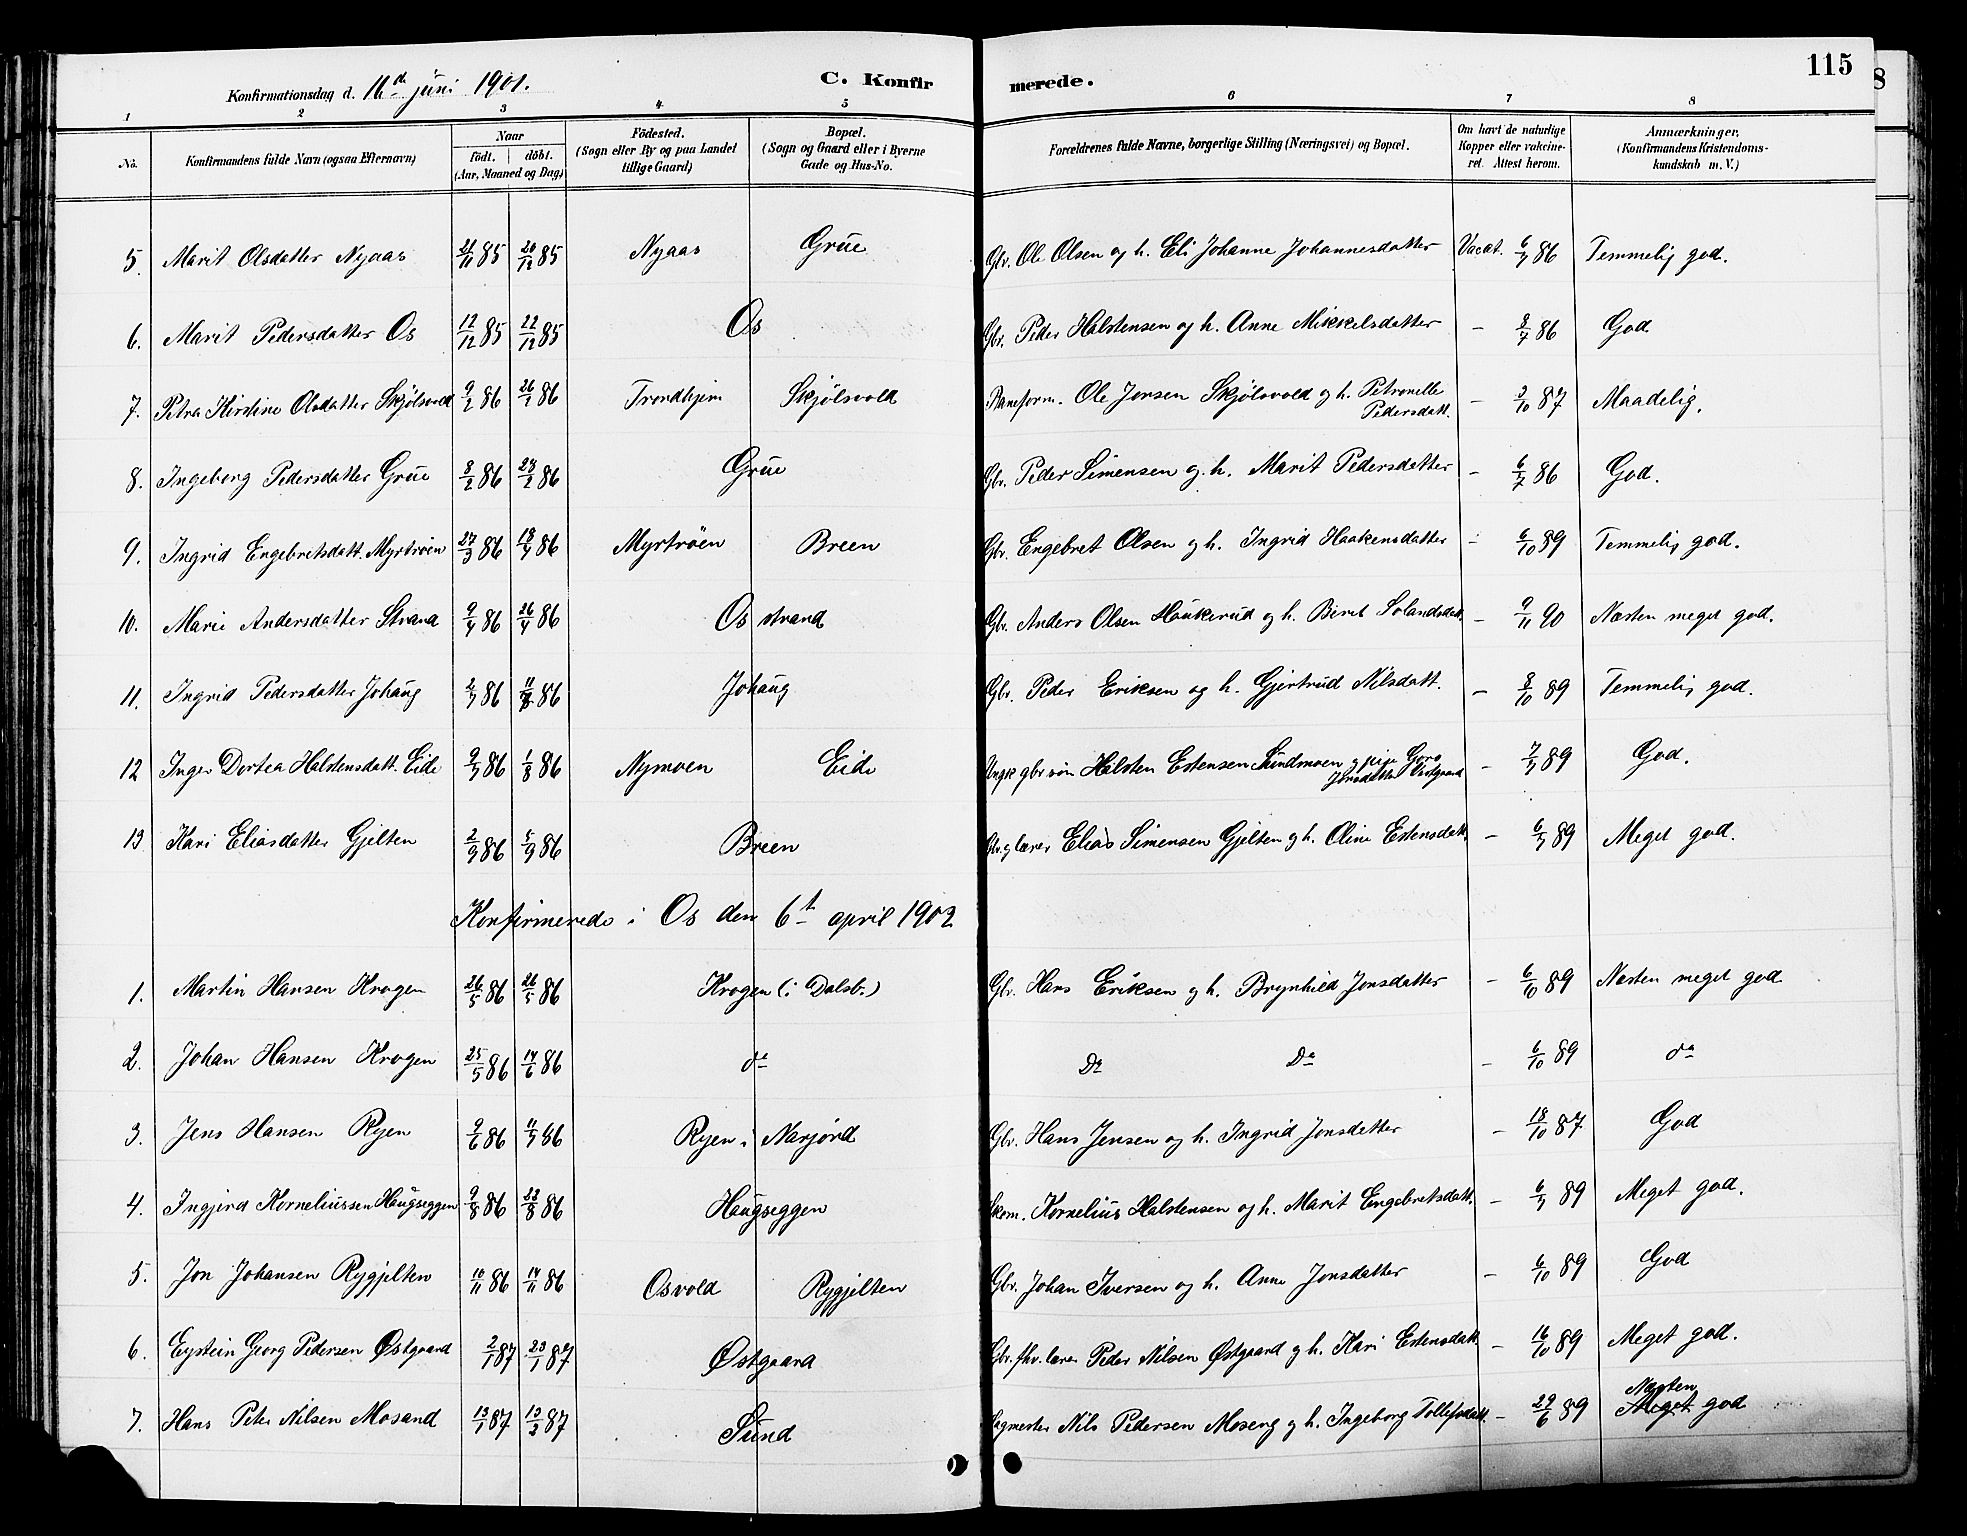 115
Konfirmationsdag d. 16d juni 1901.
C. Konfirmerede.
1 2 3 4 5 6 7 8
No. Konfirmandens fulde Navn (ogsaa Efternavn) Naar födt. döbt. (Aar, Maaned og Dag) Födested. (Sogn eller By og paa Landet tillige Gaard) Bopæl. (Sogn og Gaard eller i Byerne Gade og Hus-No. Forældrenes fulde Navne, borgerlige Stilling (Næringsvei) og Bopæl. Om havt de naturlige Kopper eller vakcineret. Attest herom. Anmærkninger. (Konfirmandens Kristendomskundskab m. V.)
5. Marit Olsdatter Nyaas 21/11 85 20/12 85 Nyaas Grue Gbr. Ole Olsen og h. Eli Johanne Johannesdatter Vacat. 6/7 86 Temmelig god.
6. Marit Pedersdatter Os 12/12 85 22/12 85 Os Gbr. Peder Halstensen og h. Anne Mikkelsdatter - 8/7 86 God
7. Petra Kirstine Olsdatter Skjölsvold 9/2 86 26/2 86 Trondhjem Skjølsvold Baneform. Ole Jonsen Skjølsvold og h. Petronelle Pedersdatt. - 3/10 87 Maadelig.
8. Ingeborg Pedersdatter Grue 8/2 86 28/2 86 Grue Gbr. Peder Simensen og h. Marit Pedersdatter - 6/7 86 God.
9. Ingrid Engebretsdatt. Myrtrøen 27/3 86 18/4 86 Myrtrøen Breen Gbr. Engebret Olsen og h. Ingrid Haakensdatter - 6/10 89 Temmelig god.
10. Marie Andersdatter Strand 9/4 86 26/4 86 Os strand Gbr. Anders Olsen Haukerud og h. Beret Solandsdatt. - 9/11 90 Næsten meget god.
11. Ingrid Pedersdatter Johaug 2/7 86 11/7 86 Johaug Gbr. Peder Eriksen og h. Gjertrud Nilsdatt. - 8/10 89 Temmelig god.
12 Inger Dortea Halstensdatt. Eide 9/7 86 1/8 86 Nymoen Eide Ungk gbr søn Halsten Estensen Sundmoen og pige Goro Jonsdatter Østgaard - 7/7 89 God.
13 Kari Eliasdatter Gjelten 2/9 86 5/9 86 Breen Gbr. og lærer Elias Simensen Gjelten og h. Oline Estensdatt. - 6/7 89 Meget god.
Konfirmerede i Os den 6t april 1902
1. Martin Hansen Krogen 26/5 86 26/5 86 Krogen (i Dalsb.) Gbr. Hans Eriksen og h. Brynhild Jonsdatter - 6/10 89 Næsten meget god
2. Johan Hansen Krogen 25/5 86 14/6 86 do Do Do - 6/10 89 do
3. Jens Hansen Ryen 9/6 86 11/7 86 Ryen i Narjord Gbr. Hans Jensen og h. Ingrid Jonsdatter - 18/10 87 God
4. Ingjerd Korneliussen Haugseggen 9/8 86 22/8 86 Haugseggen Skom. Kornelius Halstensen og h. Marit Engebretsdatt. - 6/7 89 Meget god.
5. Jon Johansen Rygjelten 10/11 86 14/11 86 Osvold Rygjelten Gbr. Johan Iversen og h. Anne Jonsdatter - 6/10 89 God
6. Eystein Georg Pedersen Østgaard 2/1 87 23/1 87 Østgaard Gbr. fhv. lærer Peder Nilsen Østgaard og h. Kari Estensdatt. - 16/10 89 Meget god.
7. Hans Peter Nilsen Mosand 13/1 87 13/2 87 Sund Sagmester Nils Pedersen Moseng og h. Ingeborg Tollefsdatt. - 29/6 89 Næsten Meget god